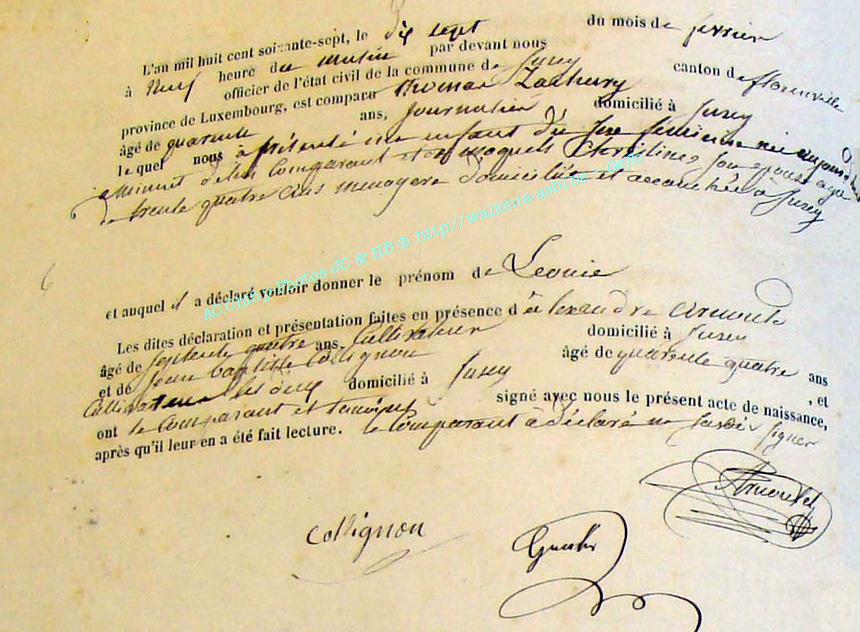 L'an mil huit cent soixante-sept, le dix sept du mois de fevrier
à Neuf heure du matin par devant nous
officier de l'état civil de la commune de Jusey canton de florenville
province de Luxembourg, est comparu thomas Zachary
âgé de quarante ans, Journalier domicilié à Jusey
lequel nous à présenté un enfant du sexe feminine née aujourd'hui à
minuit de lui comparant et de Christine son epouse agé
de trente quatre ans menagere domiciliée et accouchée à Jusey
et auquel il a déclaré vouloir donner le prénom de Leonie
Les dites déclaration et présentation faites en présence d'alexandre arnould
âgé de septente quatre ans, Cultivateur domicilié à Jusey
et de Jean baptiste Collignon âgé de quarente quatre ans
Cultivateur les deux domicilié à Jusey , et
ont le comparant et temoins signé avec nous le présent acte de naissance,
après qu'il leur en a été fait lecture. le Comparant à déclaré ne savoir signer
Arnould
Collignon
ACC/Harp Photos JC & HB © http://wallonia-asbl.be